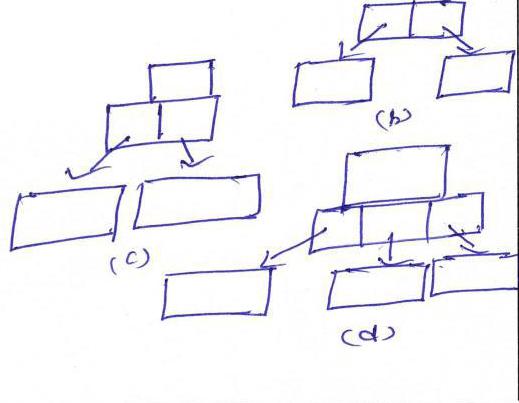 (b)
(c)
(d)